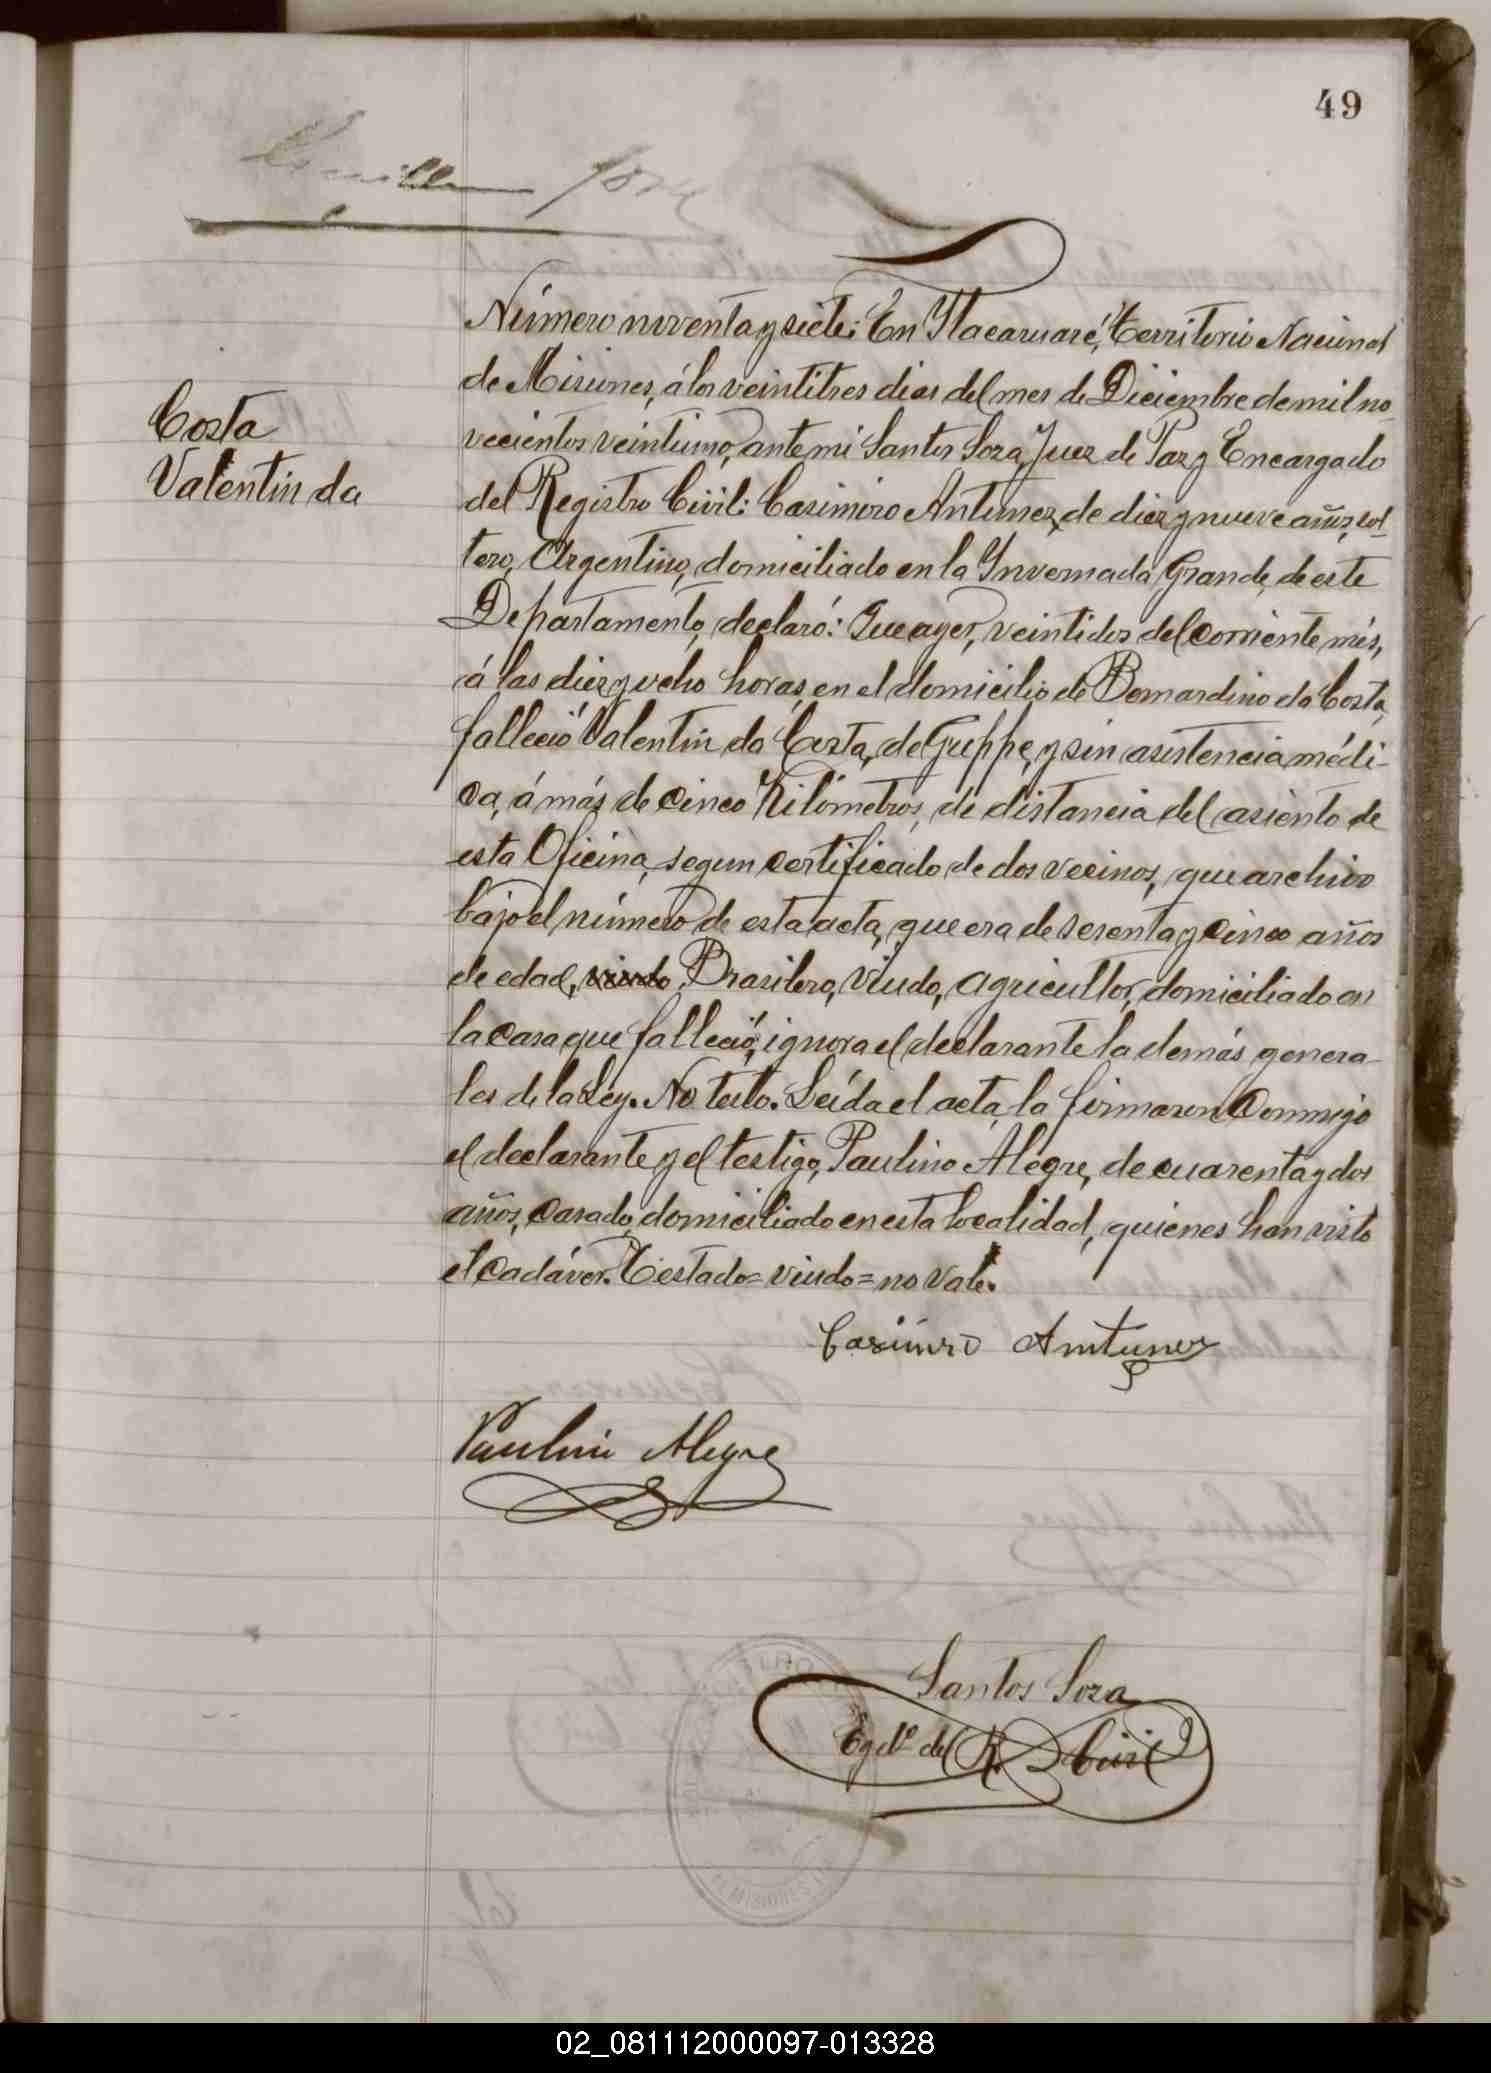 49
Costa
Valentin da
Número noventa y siete: En Itacaruaré, Territorio Nacional
de Misiones, á los veintitres dias del mes de Diciembre de mil no-
vecientos veintiuno, ante mi Santos Soza, Juez de Paz y Encargado
del Registro Civil: Casimiro Antunez, de diez y nueve años, sol-
tero, Argentino, domiciliado en la Invernada Grande, de este
Departamento, declaró: Que ayer, veintidos del corriente més,
á las diez y ocho horas, en el domicilio de Bernardino da Costa,
falleció Valentin da Costa, de Gríppe, y sin asistencia médi-
ca, á más de cinco Kilómetros, de distancia del asiento de
esta Oficina, segun certificado de dos vecinos, que archivo
bajo el número de esta acta, que era de sesenta y cinco años
de edad, viudo, Brasilero, viudo, agricultor, domiciliado en
la casa que falleció, ignora el declarante la demás genera-
les de la Ley. No testo. Leída el acta, la firmaron conmigo
el declarante y el testigo, Paulino Alegre, de cuarenta y dos
años, casado, domiciliado en esta localidad, quienes han visto
el cadáver. Testado = viudo = no vale.
Casimiro Antunez
Paulino Alegre
Santos Soza
Egdo. del R. Civil
MISIONES
02_081112000097-013328